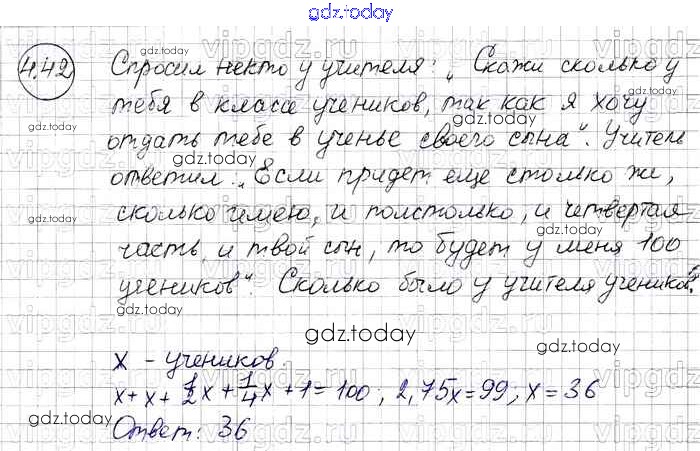 gdz.today
4.42 Спросил некто у учителя: „Скажи сколько у
тебя в классе учеников, так как я хочу
отдать тебе в ученье своего сына“. Учитель
ответил: „Если придет еще столько же,
сколько имею, и полстолько, и четвертая
часть и твой сын, то будет у меня 100
учеников“. Сколько было у учителя учеников?
gdz.today
x - учеников.
x + x + 1/2x + 1/4x + 1 = 100; 2,75x = 99; x = 36
Ответ: 36